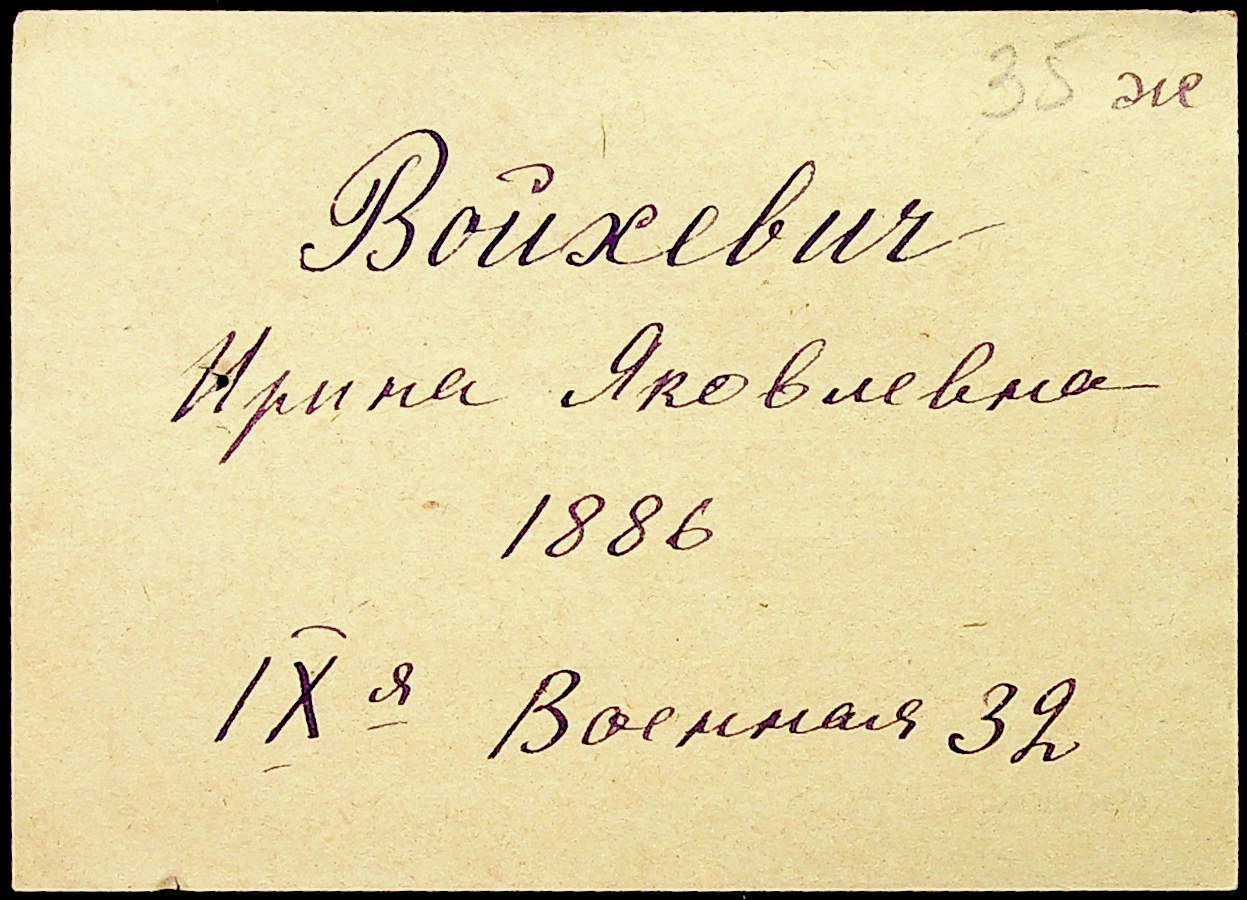 35 ж
Войхевич
Ирина Яковлевна
1886
IX я Военная 32